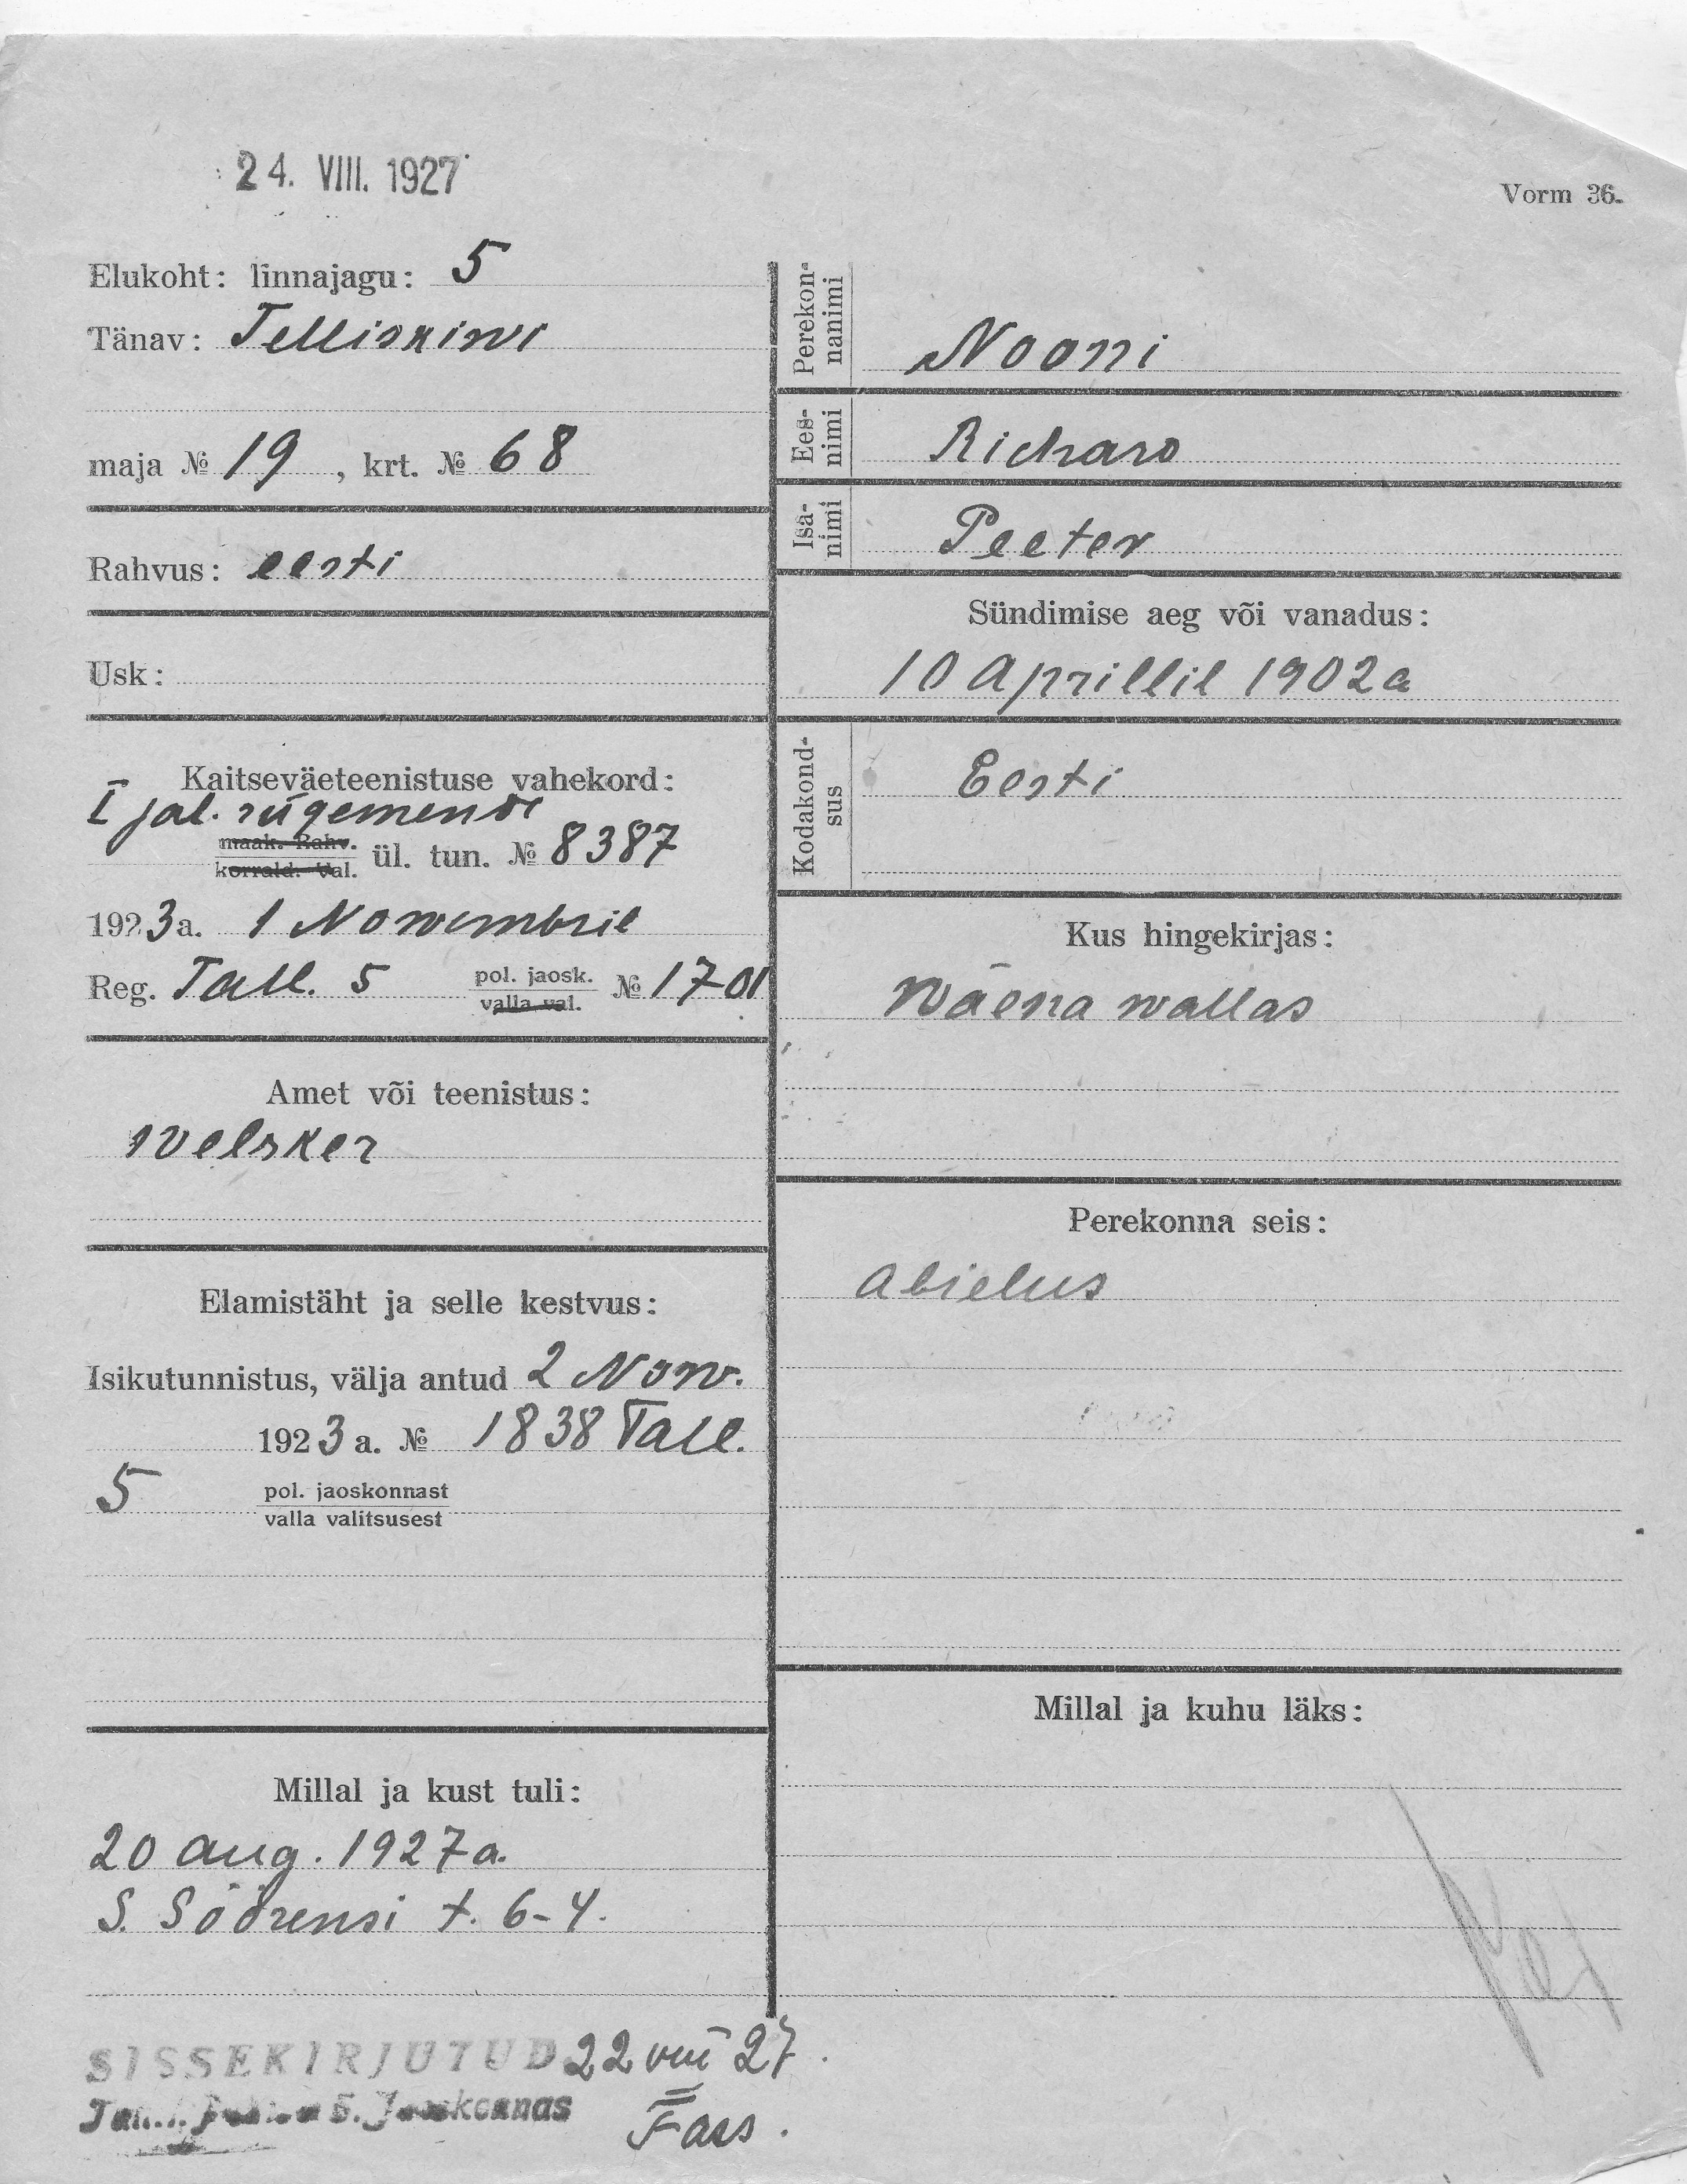 24. VIII. 1927
Vorm 36.
Elukoht: linnajagu: 5
Tänav: Telliskiwi
maja № 19, krt. № 68
Rahvus: eesti
Usk:
Kaitseväeteenistuse vahekord:
I jal. rügemendi
maak. Rahv.
korrald. Val.
ül. tun. № 8387
1923a. 1 Nowembril
Reg. Tall. 5 pol. jaosk. № 1701
valla val.
Amet või teenistus:
welsker
Elamistäht ja selle kestvus:
Isikutunnistus, välja antud 2 Now.
1923a. № 1838 Tall.
5 pol. jaoskonnast
valla valitsusest
Millal ja kust tuli:
20 aug. 1927a.
S. Söörensi t. 6-4.
SISSEKIRJUTUD 22 VIII 27.
5. Jaoskonnas
Perekon-
nanimi
Nooni
Ees-
nimi
Richard
Isa-
nimi
Peeter
Sündimise aeg või vanadus:
10 Aprillil 1902a
Kodakond-
sus
Eesti
Kus hingekirjas:
Wäena wallas
Perekonna seis:
abielus
Millal ja kuhu läks: